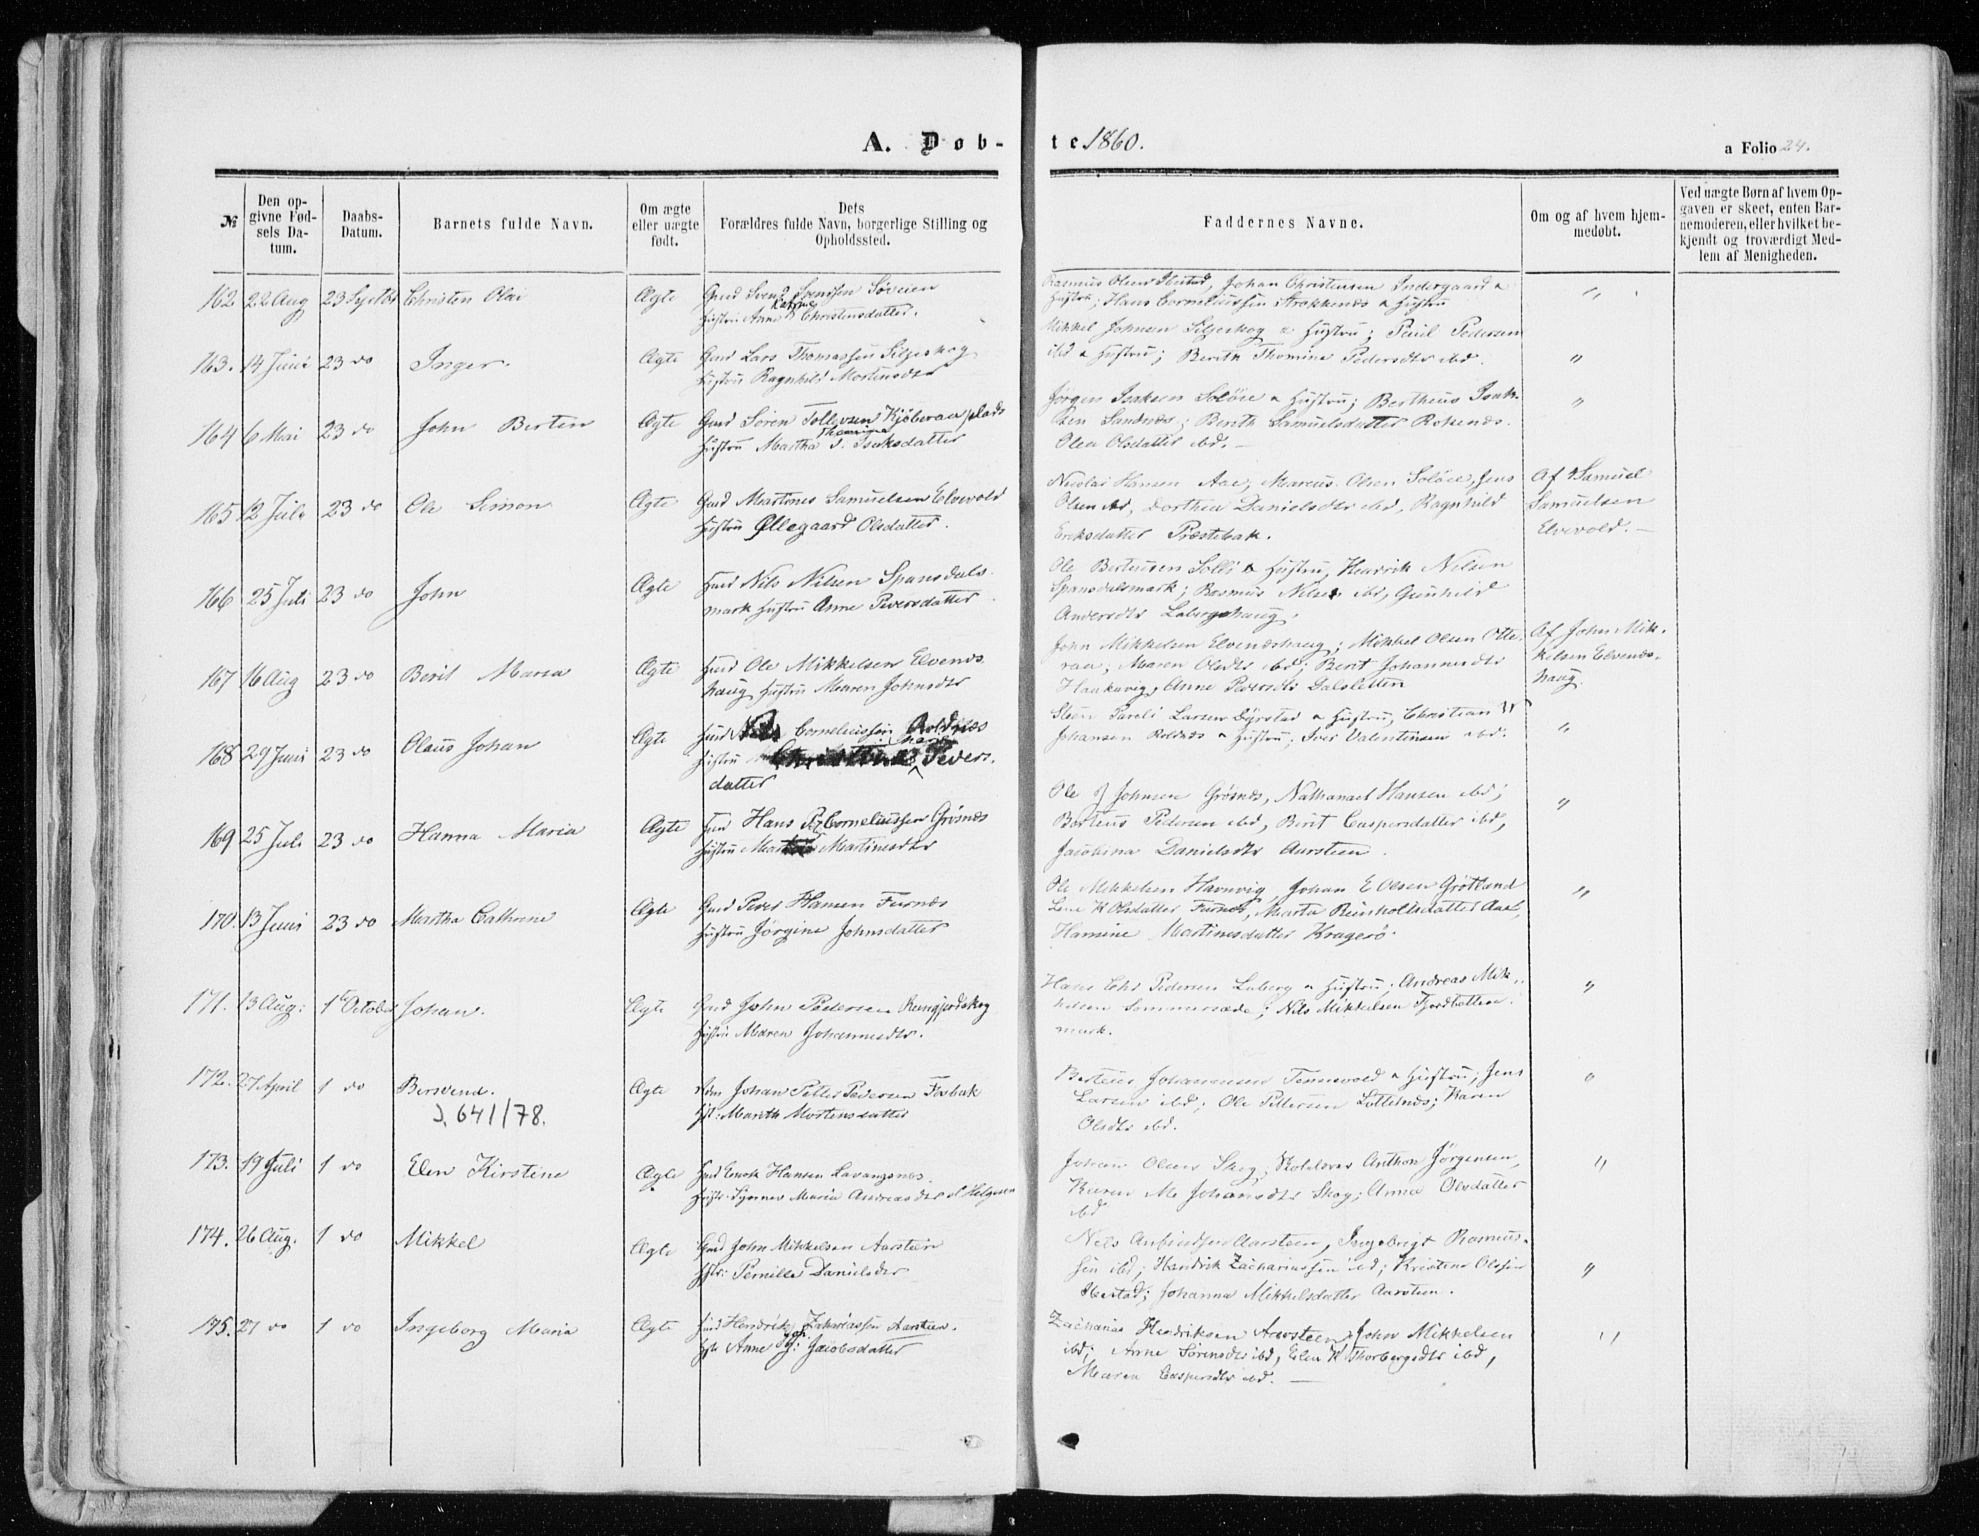 A. Døb-
te 1860.
a Folio 24.
№
Den opgivne Fødsels Datum.
Daabs-Datum.
Barnets fulde Navn.
Om ægte eller uægte født.
Dets Forældres fulde Navn, borgerlige Stilling og Opholdssted.
Faddernes Navne.
Om og af hvem hjemmedøbt.
Ved uægte Børn af hvem Opgaven er skeet, enten Barnemoderen, eller hvilket bekjendt og troværdigt Medlem af Menigheden.
162 22 Aug 23 Septbr Christen Olai Ægte Gmd Svend Svendsen Søveien
Katrine
Hustru Anne Christensdatter.
Johan Christensen Indergaard &
Hustru; Hans Corneliussen Strokkenæs & Hustru
"
163. 14 Juni 23 do Inger. Ægte Gmd Lars Thomassen Siljeskog
Hustru Ragnhild Mortensdtr
Mikkel Johnsen Siljeskog & Hustru; Paul Pedersen
ibd & Hustru; Berith Thomine Pedersdtr ibd.
"
164 6 Mai 23 do John Berten Ægte Gmd Søren Tollevsen Kjøberaa plads
Thomine
Hustru Martha J. Isaksdatter
Jørgen Isaksen Soløie & Hustru; Bertheus Isak-
sen Sandnæs; Berith Samuelsdatter Rokenæs.
Olea Olsdatter ibd. —
"
165 12 Juli 23 do Ole Simon Ægte Gmd Martines Samuelsen Elvevold
Hustru Øllegaard Olsdatter.
Nicolai Hansen Aae, Marcus Olsen Soløie, Jens
Olsen ibd, Dorthea Danielsdtr ibd, Ragnhild
Eriksdatter Præstebak.
Af Samuel
Samuelsen
Elvevold. —
166 25 Juli 23 do John Ægte Nils Nilsen Spansdals-
mark Hustru Anne Pedersdatter
Ole Berteusen Solli & Hustru, Henrik Nilsen
Spansdalsmark; Rasmus Nilsen ibd, Gunhild
Andersdtr Labergshaug.
167 16 Aug 23 do Berit Maria Ægte Ole Mikkelsen Elvenes-
haug Hustru Maren Johnsdtr
John Mikkelsen Elveneshaug; Mikkel Olsen Otte-
raa, Maren Olsdtr ibd; Berit Johannesdtr
Haakavig, Anne Pedersdtr Dalsletten
Af John Mik-
kelsen Elvenes-
haug.
168 29 Juni 23 do Olaus Johan Ægte Corneliussen Roldnæs
Hustru Peders-
datter
Steen Pareli Larsen Dyrstad & Hustru, Christian
Johansen Roldnæs & Hustru; Iver Valentinsen ibd.
"
169 25 Juli 23 do Hanna Maria Ægte Hans P. Corneliussen Grøsnæs
Hustru Martinusdtr
Ole J Johnsen Grøsnæs, Nathanael Hansen ibd;
Berteus Pedersen ibd, Berit Caspersdatter ibd,
Jacobina Danielsdtr Aarsteen.
"
170. 13 Juni 23 do Martha Cathrine Ægte Gmd Peder Hansen Furnæs
Hustru Jørgine Johnsdatter
Ole Mikkelsen Havnvig, Johan E Olsen Grøtland
Lene K Olsdatter Furnæs, Marta Reinholtsdatter Aae,
Hansine Martinesdatter Kragerø.
"
171. 13 Aug: 1 October Johan. Ægte Gmd John Pedersen Rengjordskog
Hustru Maren Johannesdtr.
Hans Chr Pedersen Laberg & Hustru; Andreas Mik-
kelsen Sommersæde; Nils Mikkelsen Fjordbotten-
mark.
"
172. 27 April 1 do Bersvend. Ægte Johan Petter Pedersen Fosbak
J. 641/78.
Hst: Mareth Mortensdatter
Berteus Johannesen Tennevold & Hustru; Jens
Larsen ibd; Ole Pettersen ; Karen
Olsdtr ibd.
"
173. 19 Juli 1 do Elen Kirstine Ægte Enok Hansen Lavangsnes.
Maria Andreasdtr Helgesen
Johan Olsen Skog; Anthon Jørgensen,
Karen M. Johansdtr Skog; Anna Olsdatter
ibd
"
174. 26 Aug. 1 do Mikkel Ægte Gmd John Mikkelsen Aarsteen
Hstr: Pernille Danielsdtr
Nels Aarsteen, Ingebrigt Rasmus-
sen ibd; Hendrik Zachariassen ibd; Kristens Olsen
Hestad; Johanna Mikkelsdatter Aarsteen.
"
175. 27 do 1 do Ingeborg Maria Ægte Hendrik Zakariassen Aarsteen.
Anne Jacobsdatter
Zacharias Hendriksen Aarsteen, John Mikkelsen
ibd; Anne Sørensdtr ibd, Elen K Thorbergsdtr ibd,
Maren Caspersdtr ibd. —
"